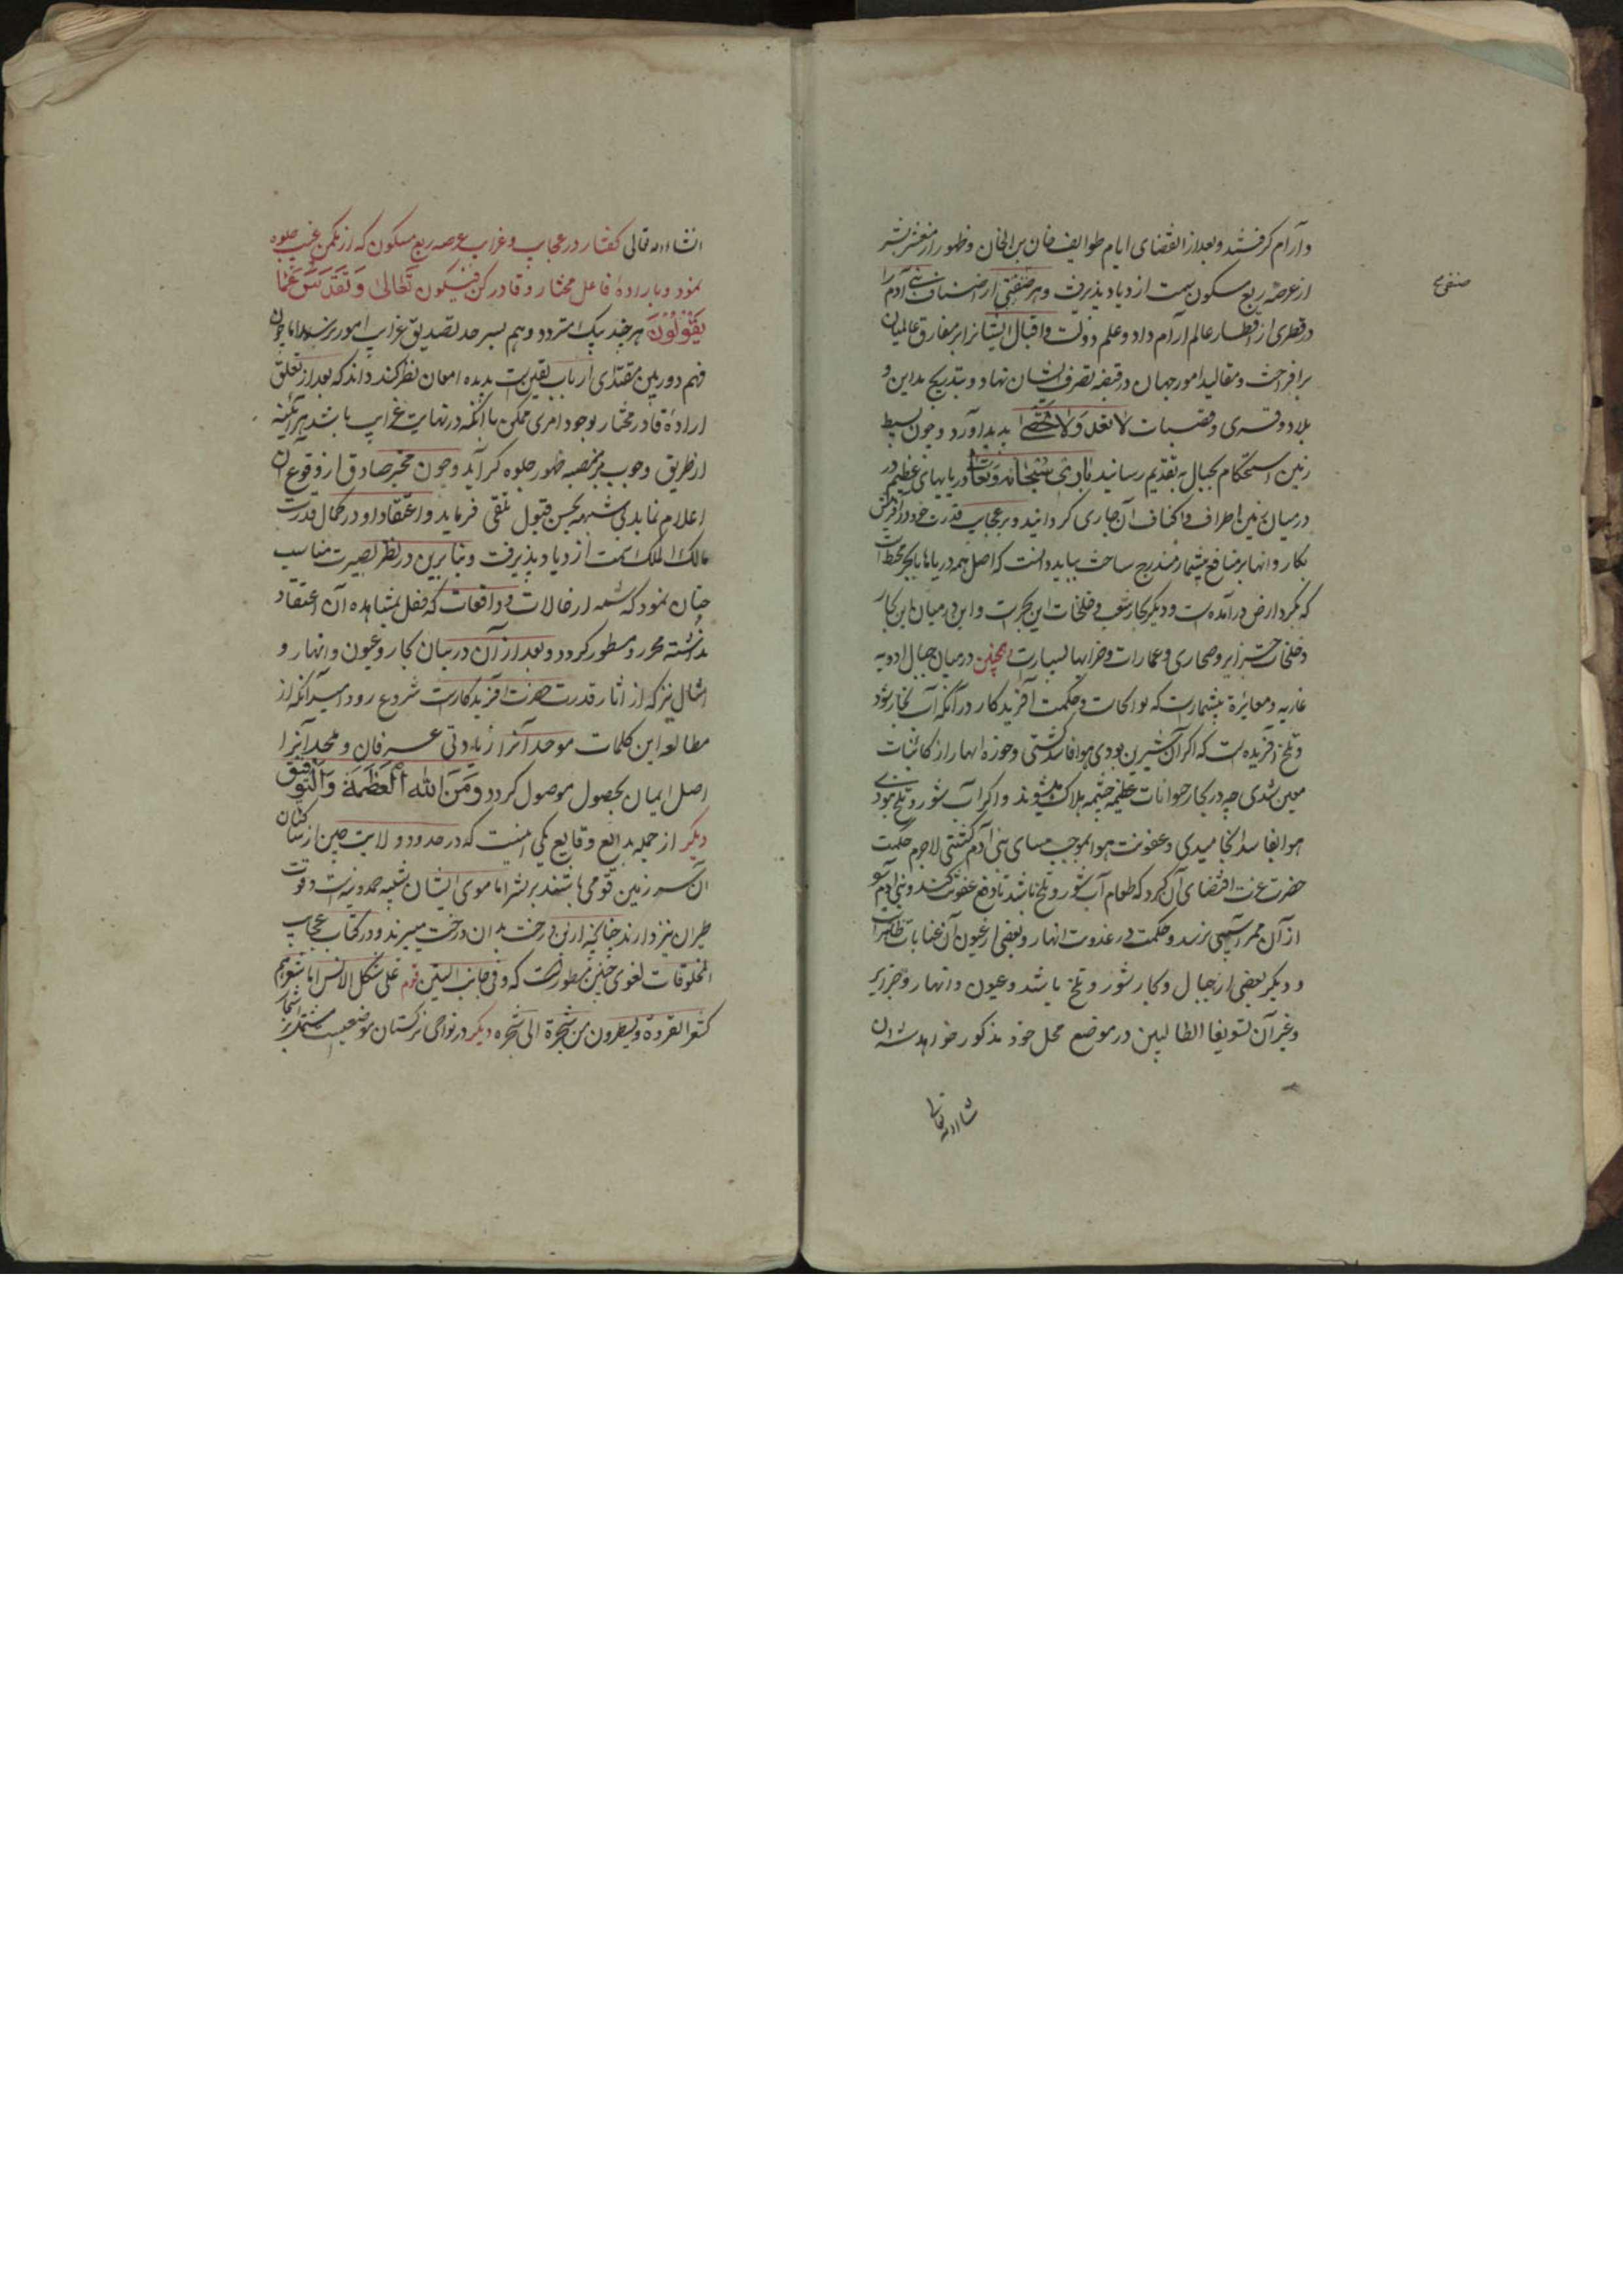 و آرام گرفتند و بعد از انقضای ایام طوایف جان بن الجان و ظهور از معشر بشر
از عرصهٔ ربع مسکون سمت ازدیاد پذیرفت و هر صنفی از اصناف بنی آدم را
صنفی
در قطری از اقطار عالم آرام داد و علم دولت و اقبال ایشانرا بر مفارق عالمیان
برافراخت و مقالید امور جهان در قبضه تصرف ایشان نهاد و بتدریج مداین و
بلاد و قری و قصبات لا تعد ولا تحصی پدید آورد و چون بسیط
زمین استحکام بجبال بتقدیم رسانید دریاهای عظیم در
در میان زمین اطراف و اکناف آن جاری گردانید و بر عجایب قدرت خود در آفرینش
بکار و انهار منافع بیشمار مندرج ساخت بباید دانست که اصل همه دریاها بحر محیط است
که بگرد ارض درآمده است و دیگر بحار شعب و خلجات این بحر است و این در میان این بحار
و خلجات جزایر و صحاری و عمارات و خرابها بسیار است همچنین در میان جبال ادویه
غاریه و مغایره بیشمار است که بوالجات و حکمت آفریدکار در آنکه آب بحار شور
و تلخ آفریده است که اگر آن شیرین بودی هوا فاسد گشتی و حوزه انهار از کاینات
معین شدی چه در بحار حیوانات عظیم جثه هلاک میشوند و اگر آب شور و تلخ نبودی
هوا بفاسد انجامیدی و عفونت هوا موجب بنی آدم گشتی لاجرم حکمت
حضرت عزت اقتضای آن کرد که طعام آب شور و تلخ باشد تا دفع عفونت کند و بنی آدم را
از آن ممر آسیبی نرسد و حکمت در عذوبت انهار و بعضی از عیون آن ظاهر است
و دیگر بعضی از جبال و بحار شور و تلخ باشد و عیون و انهار و جزایر
و غیر آن تشویقا الطالبین در موضع محل خود مذکور خواهد شد ان
شاء الله تعالی
انشاء الله تعالی گفتار در عجایب و غرایب عرصه ربع مسکون که از مکمن غیب جلوه
نمود و باراده فاعل مختار و قادر کن فیکون تعالی و تقدس عما
یقولون هر چند پیک متردد وهم بسرحد تصدیق غرایب امور نرسد اما چون
فهم دوربین مقتدای ارباب یقین است بدیده امعان نظر کند داند که بعد از تعلق
ارادهٔ قادر مختار بوجود امری ممکن با آنکه در نهایت غرایب باشد هرآینه
از طریق وجوب بر منصه ظهور جلوه گر آید و چون مخبر صادق از وقوع آن
اعلام نماید بی شبهه بحسن قبول تلقی فرماید و اعتقاد او در کمال قدرت
مالک الملک سمت ازدیاد پذیرفت و بنابرین در نظر بصیرت مناسب
چنان نمود که شمه از حالات و واقعات که عقل بمشاهده آن اعتقاد
نداشته محرر و مسطور گردد و بعد از آن در بیان بحار و عیون و انهار و
امثال نیز که از اثار قدرت حضرت آفریدکار است شروع رود امید آنکه از
مطالعه این کلمات موحد آنرا زیادتی عرفان و ملحد آنرا
اصل ایمان بحصول موصول گردد و من الله العظمة والتوفیق
دیگر از جمله بدایع وقایع یکی اینست که در حدود ولایت چین از ساکنان
آن سرزمین قومی باشند بر بشر اما موی ایشان شبیه حمدونه است و قوت
طیران نیز دارند چنانچه ازین درخت بدان درخت میپرند و در کتاب عجایب
المخلوقات لغوی چنین مسطور است که و فی جانب الصین قوم علی شکل الانس اما شعرهم
کشعر القردة و یطیرون من شجرة الی شجره دیگر در نواحی ترکستان موضعیست مشتمل بر اشجار